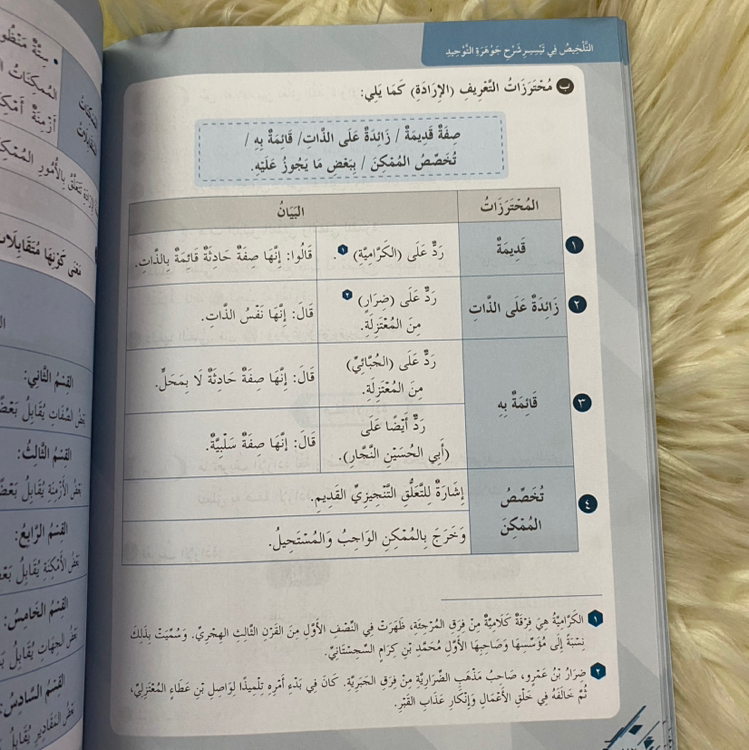 التَّلْخِيصُ فِي تَيْسِيرِ شَرْحِ جَوْهَرَةِ التَّوْحِيدِ
ب مُحْتَرَزَاتُ التَّعْرِيفِ (الإِرَادَةِ) كَمَا يَلِي:
صِفَةٌ قَدِيمَةٌ / زَائِدَةٌ عَلَى الذَّاتِ/ قَائِمَةٌ بِهِ /
تُخَصِّصُ المُمْكِنَ / بِبَعْضِ مَا يَجُوزُ عَلَيْهِ.
المُحْتَرَزَاتُ البَيَانُ
١ قَدِيمَةٌ رَدٌّ عَلَى (الكَرَّامِيَّةِ) ١. قَالُوا: إِنَّهَا صِفَةٌ حَادِثَةٌ قَائِمَةٌ بِالذَّاتِ.
٢ زَائِدَةٌ عَلَى الذَّاتِ رَدٌّ عَلَى (ضِرَارٍ) ٢
مِنَ المُعْتَزِلَةِ. قَالَ: إِنَّهَا نَفْسُ الذَّاتِ.
٣ قَائِمَةٌ بِهِ رَدٌّ عَلَى (الجُبَّائِيِّ)
مِنَ المُعْتَزِلَةِ. قَالَ: إِنَّهَا صِفَةٌ حَادِثَةٌ لَا بِمَحَلٍّ.
رَدٌّ أَيْضًا عَلَى
(أَبِي الحُسَيْنِ النَّجَّارِ). قَالَ: إِنَّهَا صِفَةٌ سَلْبِيَّةٌ.
٤ تُخَصِّصُ
المُمْكِنَ
إِشَارَةٌ لِلتَّعَلُّقِ التَّنْجِيزِيِّ القَدِيمِ.
وَخَرَجَ بِالمُمْكِنِ الوَاجِبُ وَالمُسْتَحِيلُ.
١ الكَرَّامِيَّةُ هِيَ فِرْقَةٌ كَلَامِيَّةٌ مِنْ فِرَقِ المُرْجِئَةِ، ظَهَرَتْ فِي النِّصْفِ الأَوَّلِ مِنَ القَرْنِ الثَّالِثِ الهِجْرِيِّ. وَسُمِّيَتْ بِذَلِكَ
نِسْبَةً إِلَى مُؤَسِّسِهَا وَصَاحِبِهَا الأَوَّلِ مُحَمَّدِ بْنِ كِرَامٍ السِّجِسْتَانِيِّ.
٢ ضِرَارُ بْنُ عَمْرٍو، صَاحِبُ مَذْهَبِ الضِّرَارِيَّةِ مِنْ فِرَقِ الجَبْرِيَّةِ. كَانَ فِي بَدْءِ أَمْرِهِ تِلْمِيذًا لِوَاصِلِ بْنِ عَطَاءٍ المُعْتَزِلِيِّ،
ثُمَّ خَالَفَهُ فِي خَلْقِ الأَعْمَالِ وَإِنْكَارِ عَذَابِ القَبْرِ.
سِتَّةٌ
المُمْكِنَاتُ
أَزْمِنَةٌ
مَعْنَى كَوْنِهَا مُتَقَابِلَاتٍ
القِسْمُ الثَّانِي:
بَعْضُ الصِّفَاتِ يُقَابِلُ
القِسْمُ الثَّالِثُ:
بَعْضُ الأَزْمِنَةِ يُقَابِلُ
القِسْمُ الرَّابِعُ:
بَعْضُ الأَمْكِنَةِ يُقَابِلُ
القِسْمُ الخَامِسُ:
بَعْضُ الجِهَاتِ يُقَابِلُ
القِسْمُ السَّادِسُ:
بَعْضُ المَقَادِيرِ